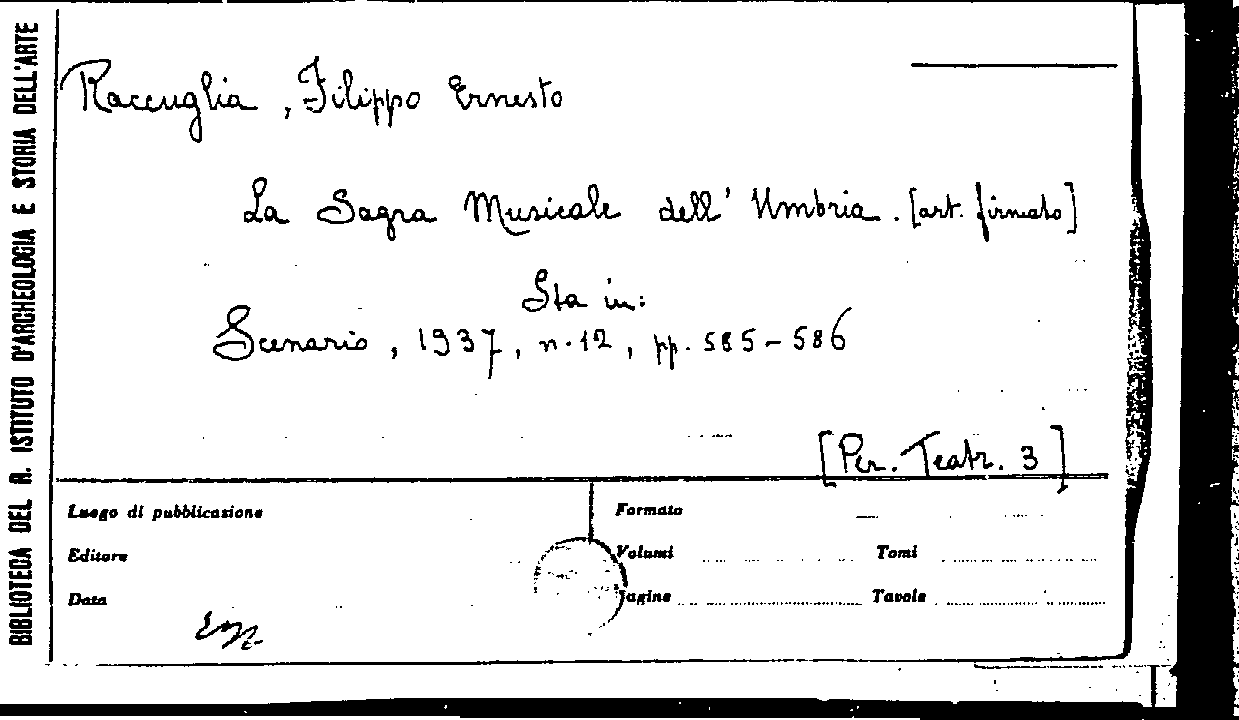 BIBLIOTECA DEL R. ISTITUTO D'ARCHEOLOGIA E STORIA DELL'ARTE
Raccuglia, Filippo Ernesto
La Sagra Musicale dell'Umbria. [art. firmato]
Sta in:
Scenario, 1937, n. 12, pp. 585-586
[Per. Teatr. 3]
Luogo di pubblicazione
Formato
Editore
Volumi
Tomi
Data
Pagine
Tavole